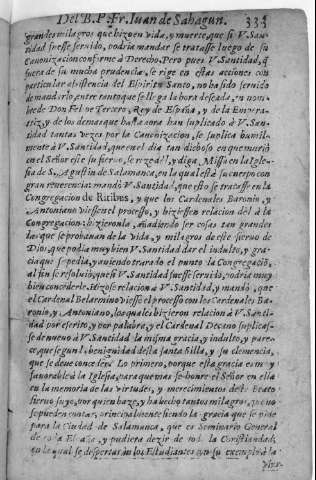 Del B. P. Fr. Iuan de Sahagun. 335
grandes milagros que hizo en vida, y muerte, que si V. San-
tidad fuesse seruido, podria mandar se tratasse luego de su
Canonizacion conforme à Derecho. Pero pues V. Santidad, q̃
fuera de su mucha prudencia, se rige en estas acciones con
particular assistencia del Espiritu Santo, no ha sido seruido
de mandarlo, entre tanto que se llega la hora deseada, en nom-
bre de Don Felipe Tercero, Rey de España, y de la Empera-
triz, y de los demas que hasta aora han suplicado à V. San-
tidad tantas vezes por la Canonizacion, se suplica humil-
mente à V. Santidad, que en el dia tan dichoso en que murio
en el Señor este su sieruo, se rezedèl, y diga Missa en la Igle-
sia de S. Agustin de Salamanca, en la qual està su cuerpo con
gran reuerencia: mandò V. Santidad, que esto se tratasse en la
Congregacion de Ritibus, y que los Cardenales Baronio, y
Antoniano viessen el processo, y hiziessen relacion dèl à la
Congregacion: hizieronla, añadiendo ser cosas tan grandes
las que se prouauan de la vida, y milagros de este sieruo de
Dios, que podia muy bien V. Santidad dar el indulto, y gra-
cia que se pedia, y auiendo tratado el punto la Congregaciõ,
al fin se resoluio, que si V. Santidad fuesse seruido, podria muy
bien concederle. Hizose relacion à V. Santidad, y mandò, que
el Cardenal Belarmino viesse el processo con los Cardenales Ba-
ronio, y Antoniano, los quales hizieron relacion à V. Santi-
dad por escrito, y por palabra, y el Cardenal Decano suplicas-
se de nueuo à V. Santidad la misma gracia, y indulto, y pare-
ce, que segun la benignidad desta santa Silla, y su clemencia,
que se deue conceder. Lo primero, porque esta gracia es muy
fauorable à la Iglesia, para que mas se honre el Señor en ella
en la memoria de las virtudes, y merecimientos deste Beato
sieruo suyo, por quien haze, y ha hecho tantos milagros, que no
se pueden contar, principalmente siendo la gracia que se pide
para la Ciudad de Salamanca, que es Seminario General
de toda España, y pudiera dezir de toda la Christiandad,
en la qual se despertaràn los Estudiantes con su exemplo à la